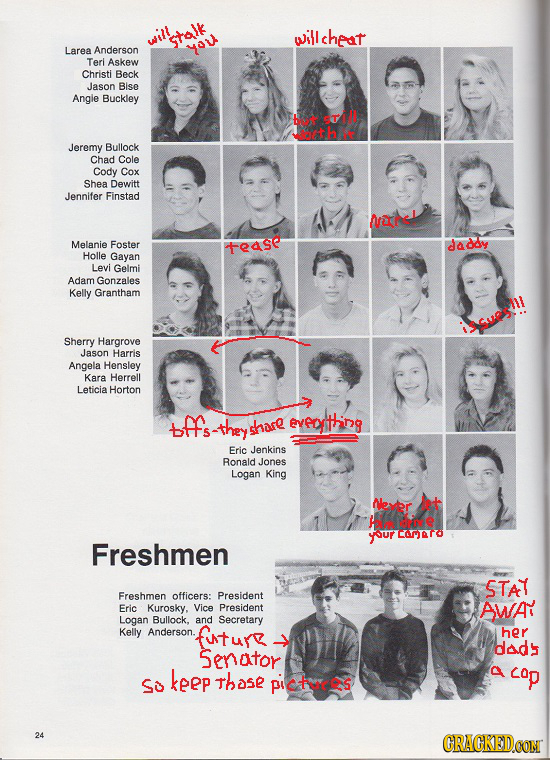 will stalk
you
will cheat
Larea Anderson
Teri Askew
Christi Beck
Jason Bise
Angie Buckley
but still
worth it
Jeremy Bullock
Chad Cole
Cody Cox
Shea Dewitt
Jennifer Finstad
Narc!
Melanie Foster
Holle Gayan
Levi Gelmi
Adam Gonzales
Kelly Grantham
tease
daddy
issues!!!
Sherry Hargrove
Jason Harris
Angela Hensley
Kara Herrell
Leticia Horton
bffs-they share everything
Eric Jenkins
Ronald Jones
Logan King
Never let
him drive
your camaro
Freshmen
Freshmen officers: President
Eric Kurosky, Vice President
Logan Bullock, and Secretary
Kelly Anderson.
future
Senator
so keep those pictures
STAY
AWAY
her
dads
a cop
24
CRACKED.COM